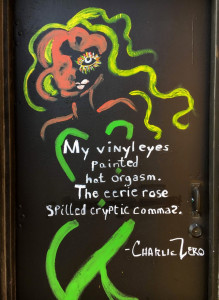 My vinyl eyes
painted
hot orgasm.
The eerie rose
spilled cryptic commas.
-Charlie Zero